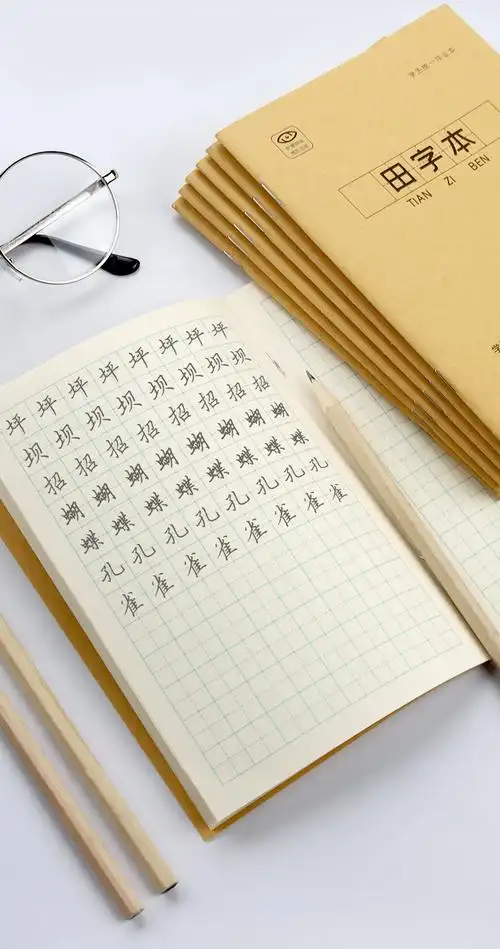 学生统一作业本
田字本
TIAN ZI BEN
坪坪坪坪坪坪坪坪
坝坝坝坝坝坝坝坝
招招招招招招招招
蝴蝴蝴蝴蝴蝴蝴蝴
蝶蝶蝶蝶蝶蝶蝶蝶
孔孔孔孔孔孔孔孔
雀雀雀雀雀雀雀雀